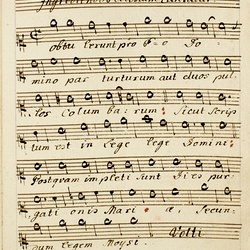 obtu lerunt pro e o Do
mino par turturum aut duos pul
los Colum ba rum: Sicut Scrip
tum est in lege lege Domini:
Postquam impleti sunt Dies pur
gati onis Mari e, Secun-
dum legem Moysi.
Volti